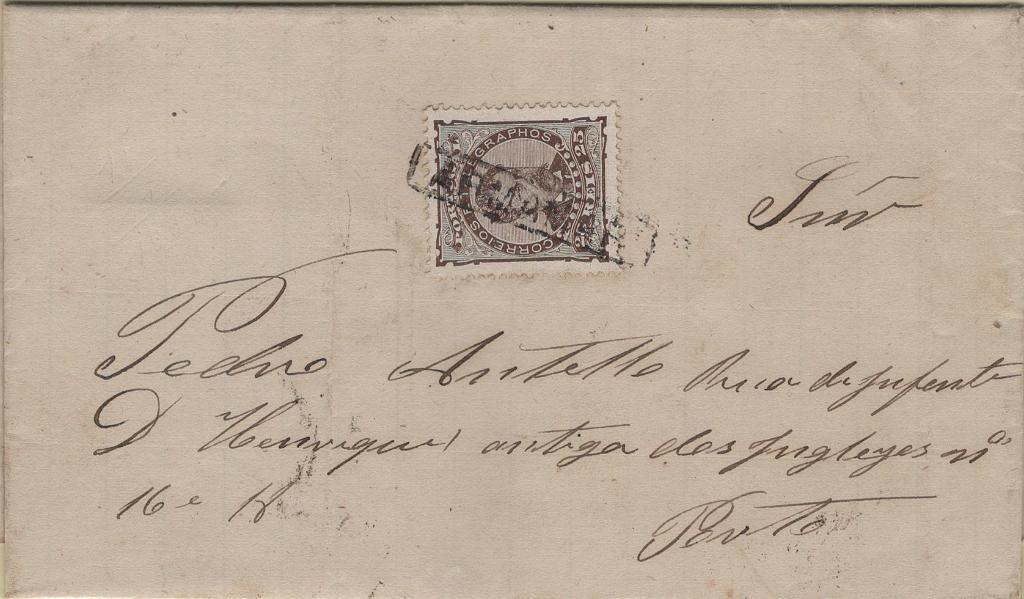 CORREIOS E TELEGRAPHOS
75
75
Snr
Pedro Antello Rua do Infante
D Henrique antiga dos Inglezes nos
16 e 18
Porto